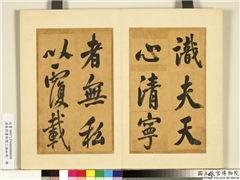 識夫天
心清寧
者無私
以覆載
國立故宮博物院